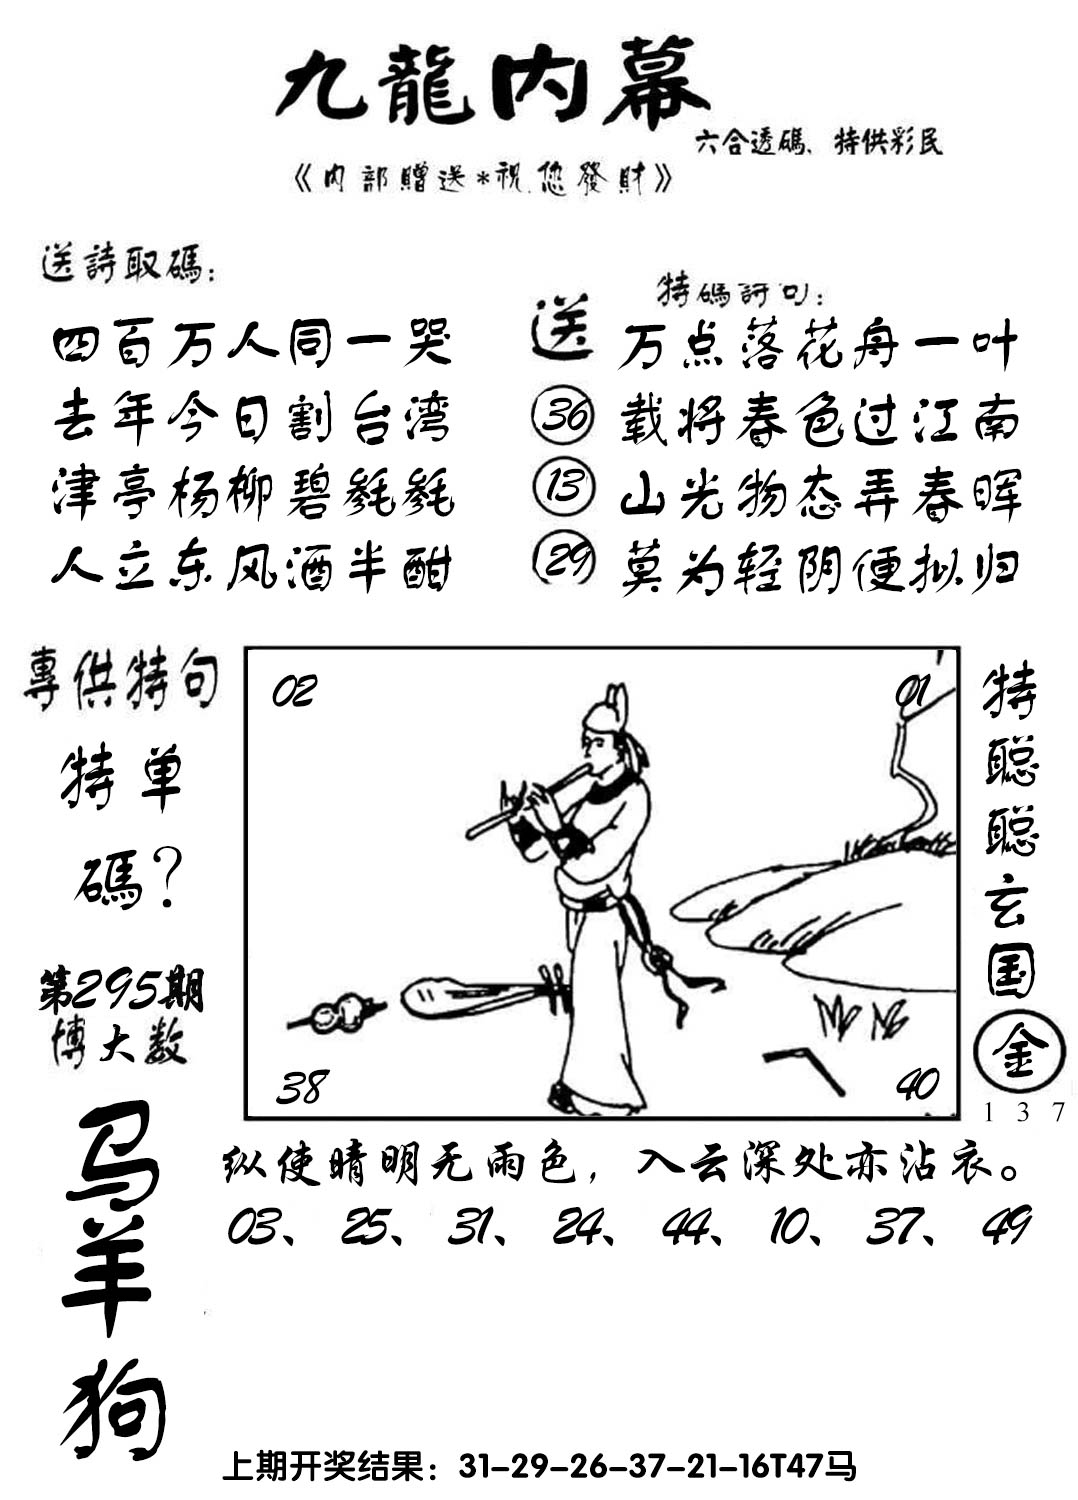 九龍内幕
六合透碼、特供彩民
《内部贈送*祝您發財》
送詩取碼：
四百万人同一哭
去年今日割台湾
津亭杨柳碧毵毵
人立东风酒半酣
送
36
13
29
特碼詩句：
万点落花舟一叶
载将春色过江南
山光物态弄春晖
莫为轻阴便拟归
專供特句
特单
碼？
第295期
博大数
马
羊
狗
02
01
38
40
特聪聪玄国
金
1 3 7
纵使晴明无雨色，入云深处亦沾衣。
03、25、31、24、44、10、37、49
上期开奖结果：31-29-26-37-21-16T47马